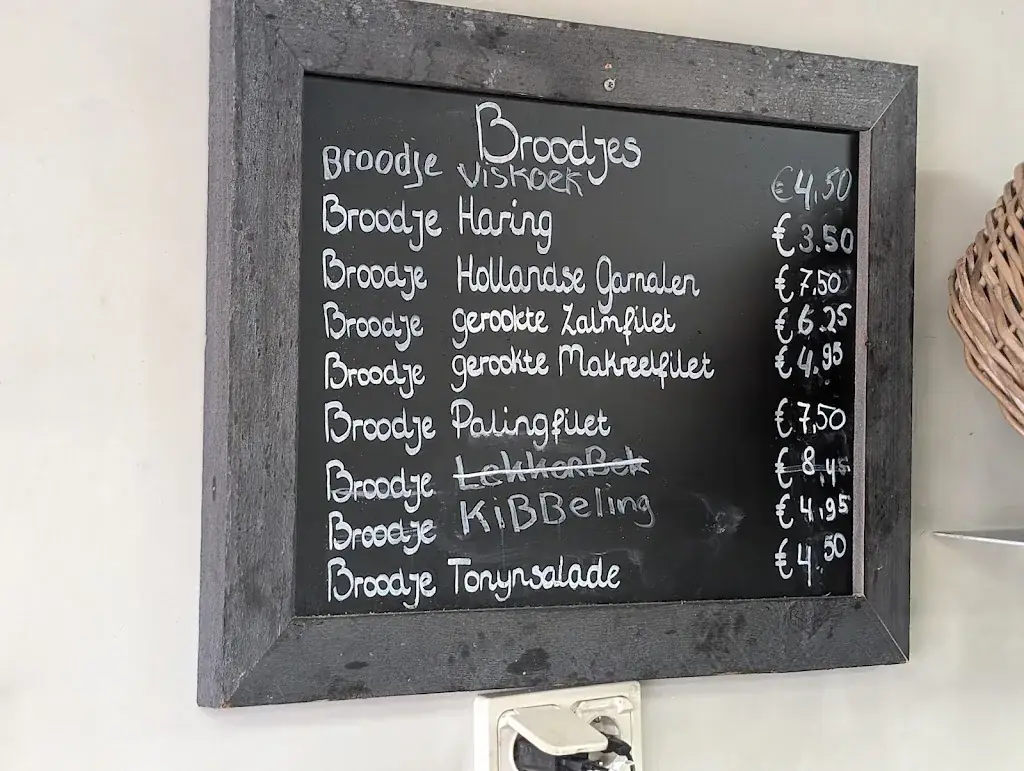 Broodjes
Broodje Viskoek €4,50
Broodje Haring €3.50
Broodje Hollandse Garnalen €7,50
Broodje gerookte Zalmfilet €6.25
Broodje gerookte Makreelfilet €4,95
Broodje Palingfilet €7,50
Broodje LekkerBek €8,45
Broodje KiBBeling €4,95
Broodje Tonynsalade €4,50